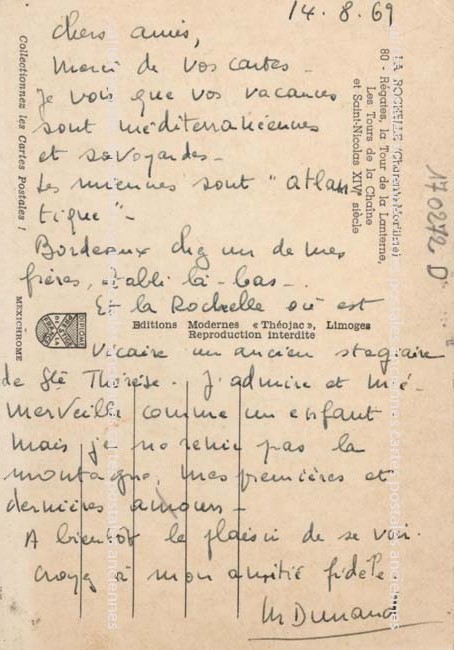 14.8.69
Chers amis,
Merci de vos cartes -
Je vois que vos vacances
sont méditerranéennes
et savoyardes -
Les miennes sont "atlan
tique" -
Bordeaux chez un de mes
frères, établi là-bas -
Et la Rochelle où est
Vicaire un ancien stagiaire
de Ste Thérèse. J'admire et m'é-
merveille comme un enfant
mais je ne renie pas la
montagne, mes premières et
dernières amours -
A bientôt le plaisir de se voir.
Croyez à mon amitié fidèle
M Dunand
LA ROCHELLE (Charente-Maritime)
80 - Régates, la Tour de la Lanterne,
Les Tours de la Chaîne
et Saint-Nicolas XIVe siècle
170272 D
Collectionnez les Cartes Postales !
MEXICHROME
Editions Modernes « Théojac », Limoges
Reproduction interdite
cartes postales anciennes